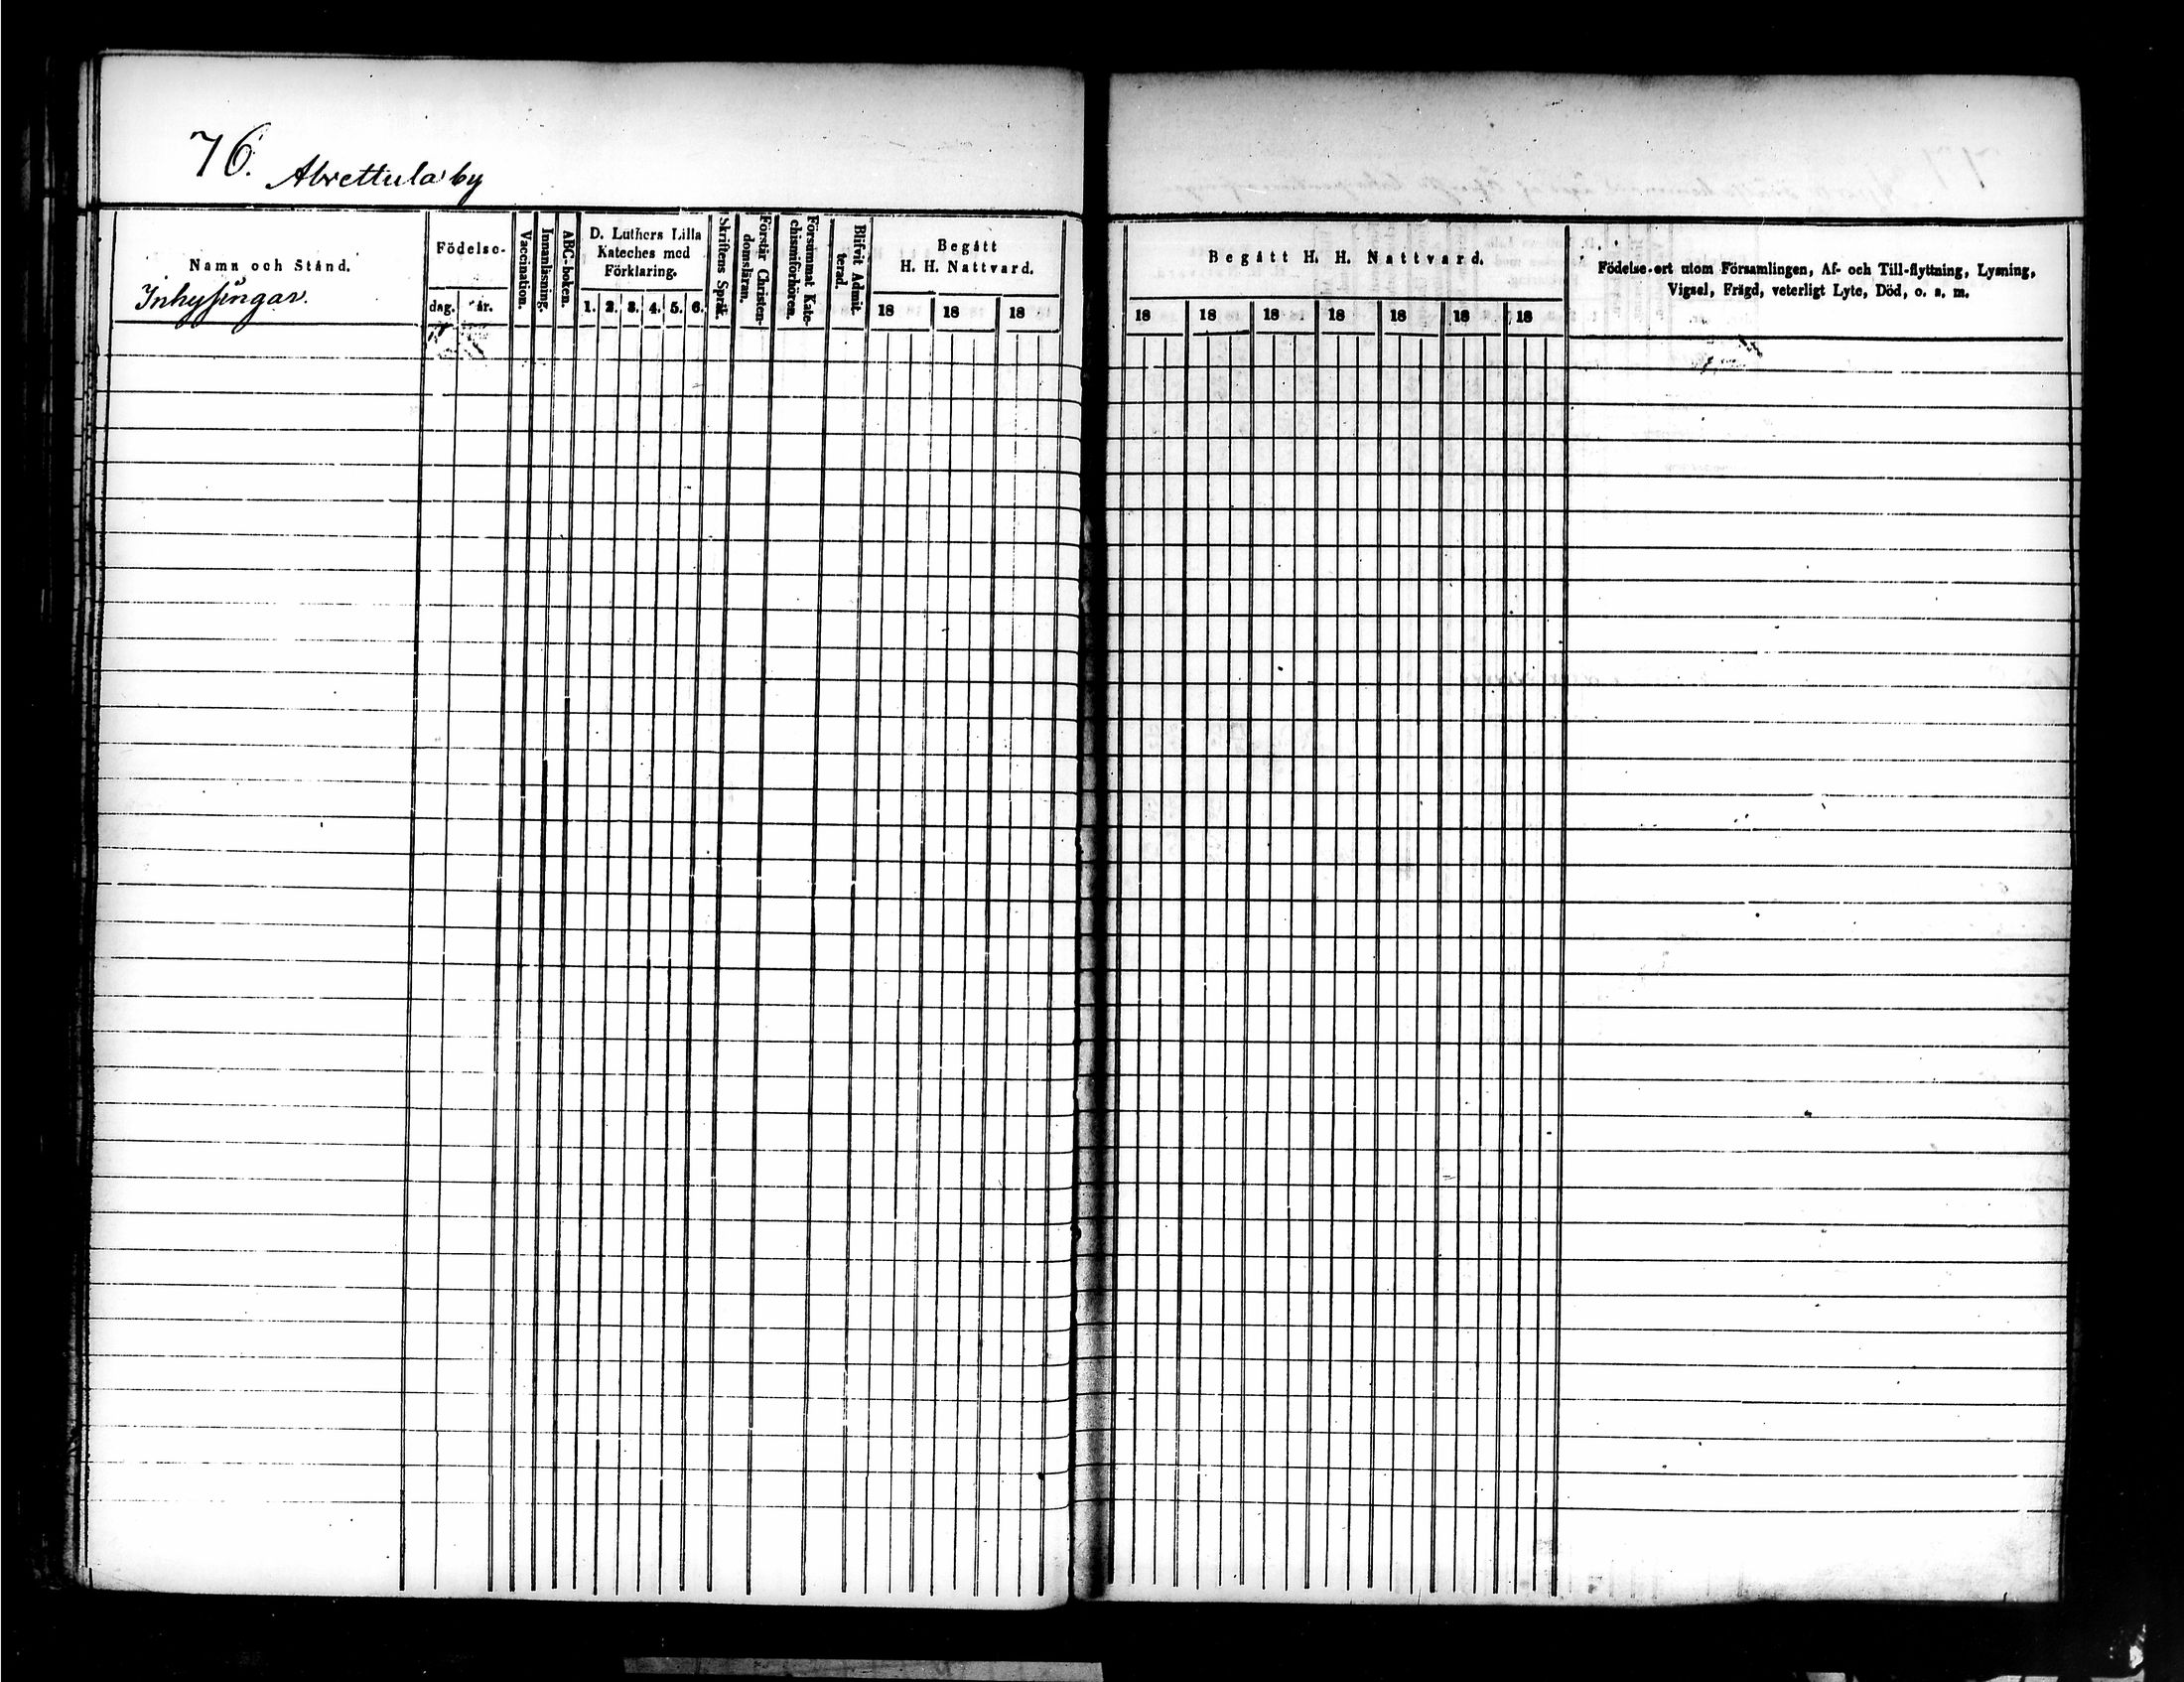 76. Abrettula by
Namn och Stånd.
Inhysingar.
Födelse-
dag. år.
Vaccination.
Innanläsning.
ABC-boken.
D. Luthers Lilla
Kateches med
Förklaring.
1. 2. 3. 4. 5. 6.
Skriftens Språk.
Förstår Christen-
domsläran.
Försummat Kate-
chismiförhören.
Blifvit Admit-
terad.
Begått
H. H. Nattvard.
18 18 18
Begått H. H. Nattvard.
18 18 18 18 18 18 18
Födelse-ort utom Församlingen, Af- och Till-flyttning, Lysning,
Vigsel, Frägd, veterligt Lyte, Död, o. s. m.